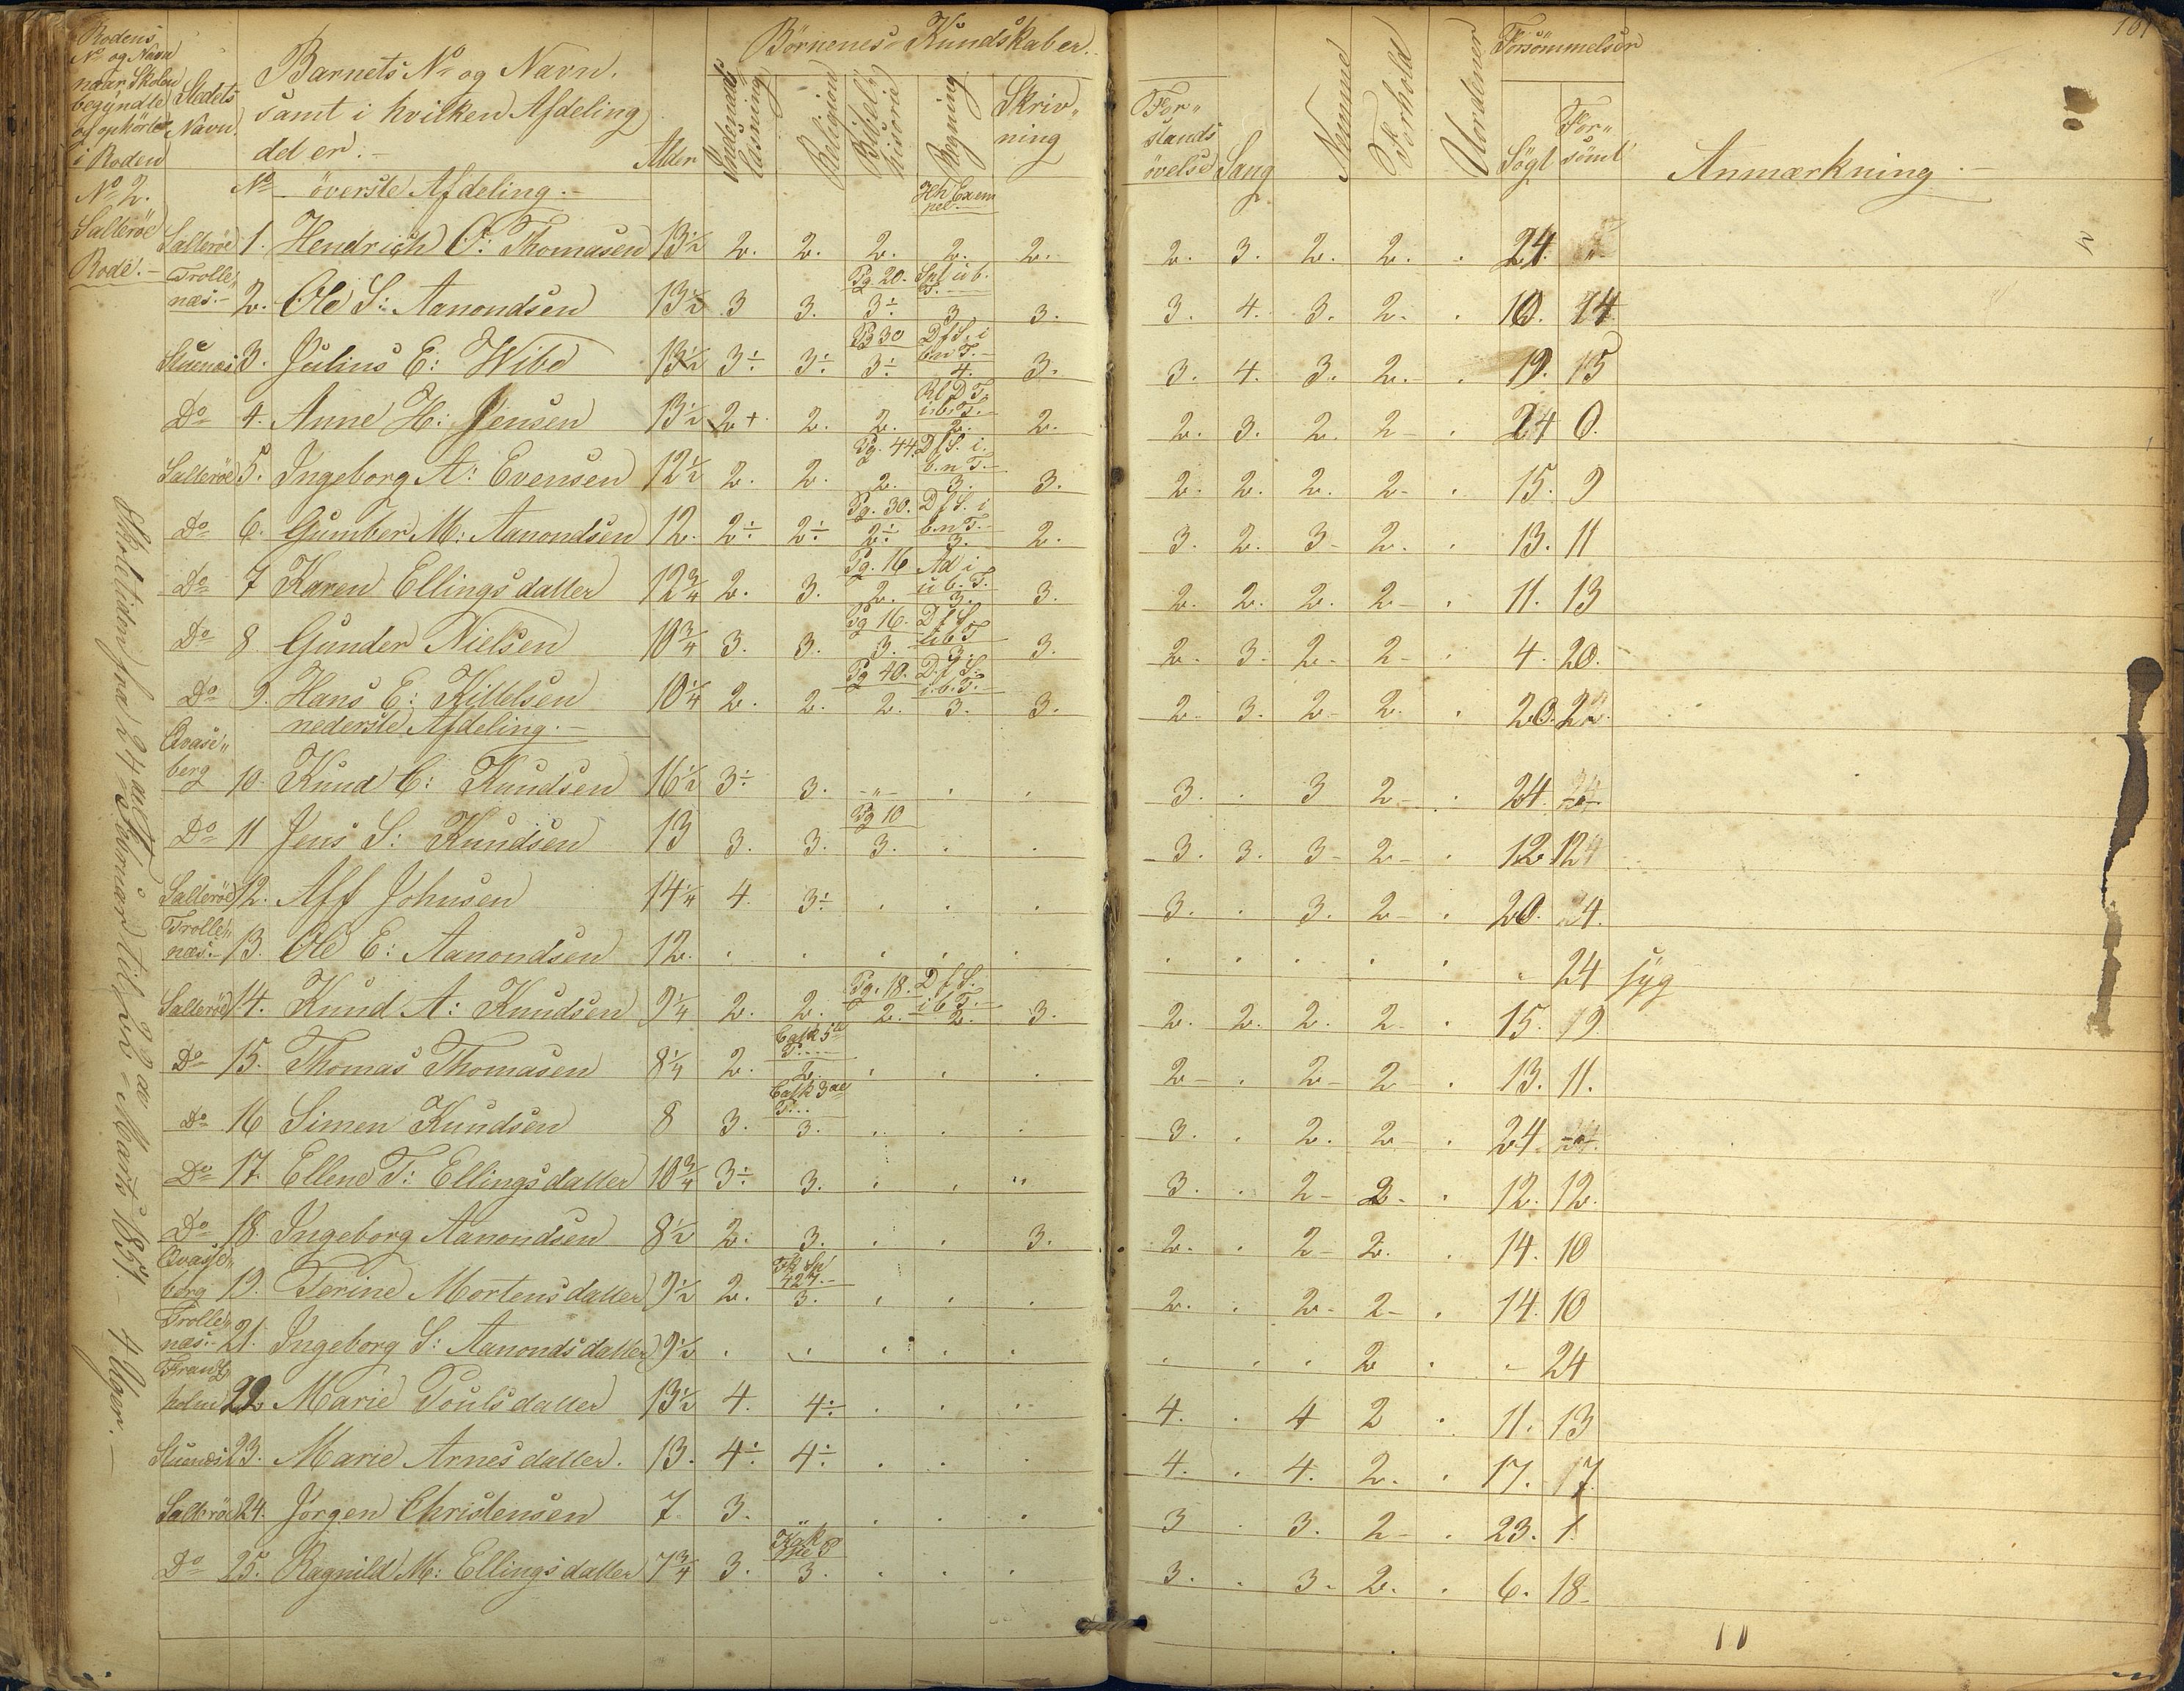 Rodens
No og Navn
naar Skolen
begyndte
og ophörte
i Roden
Stedets
Navn.
Barnets No og Navn.
samt i hvilken Afdeling
det er.
Alder
Börnenes Kundskaber.
Indenads læsning
Religion
Bibelhistorie
Regning
Skriv„ning
For„stands övelse
Sang
Nemme
Forhold
Uordener
Forsömmelser
Sögt
For„sömt
Anmærkning.
161
No 2.
Salleröe
Rode.
No överste Afdeling.
Salleröe 1. Hendrich O: Thomasen 13½ 2. 2. 2. 2. 2. 2. 3. 2. 2. . 24. „
Trolle„næs. 2. Ole S: Aanondsen 13½ 3 3. Pg. 20. 3÷ 3 3. 3. 4. 3. 2. . 10. 14
Stuenæs 3. Julius E: Wibe 13½ 3÷ 3÷ Pg 30 3÷ D f S. i b n T. 4. 3. 3. 4. 3. 2. . 19. 15
Do 4. Anne H: Jensen 13½ 2+ 2. 2. 2. 2. 2. 3. 2. 2 . 24 0.
Salleröe 5. Ingeborg A: Evensen 12½ 2. 2. Pg. 44. 2. D f S. i. b. n T. 3. 3. 2. 2. 2. 2 . 15. 9
Do 6. Gumber M: Aanondsen 12. 2÷ 2÷ Pg. 30. 2÷ D f S. i b. n T. 3. 2. 3. 2. 3 2. . 13. 11
Do 7 Karen Ellingsdatter 12¾ 2. 3. Pg. 16 2. Ad i u b. T. 3. 3. 2. 2. 2. 2 . 11. 13
Do 8 Gunder Nielsen 10¾ 3. 3. Pg 16. 3. D f S. 3. 3. 2. 3. 2 2 . 4. 20.
Do 9. Hans E: Kittelsen 10¼ 2. 2. Pg 40. 2. D. f S. i. b. T. 3. 3. 2 3. 2 2. . 20. 22.
nederste Afdeling.
Qvase„berg 10. Knud C: Knudsen 16½ 3÷ 3. „ . . 3. . 3 2 . 24.
Do 11 Jens S: Knudsen 13 3. 3. Pg 10 3. . . 3. 3. 3 2 . 12. 12
Salleröe 12. Aff Johnsen 14¼ 4. 3÷ . . . 3. . 3. 2 . 20. 4.
Trolle„næs. 13. Ole E: Aanondsen 12. . . . . . . . . . . „ 24 syg
Salleröe 14. Knud A: Knudsen 9¼ 2. 2. Pg. 18. 2. D f S. i b T. 2. 3. 2. 2. 2. 2 . 15. 19
Do 15. Thomas Thomasen 8¼ 2. 2. . . . 2 . 2 2 . 13. 11.
Do 16 Simen Knudsen 8 3. 3. . . . 3. . 2. 2 . 24.
Do 17. Ellene T: Ellingsdatter 10¾ 3÷ 3. . . „ 3. . 2 2. . 12. 12.
Do 18. Ingeborg Aanondsen 8½ 2. 3. . . 3. 2. . 2 2. . 14. 10
Qvase„berg 19. Terine Mortensdatter 9½ 2. 3. . . . 2. . 2 2 . 14. 10
Trolle„næs. 21. Ingeborg S: Aanondsdatter 9½ . . . . . . . . 2 . „ 24
Frantz„holm 22 Marie Poulsdatter 13½ 4. 4÷ . . . 4. . 4 2 . 11. 13
Stuenæs 23. Marie Arnesdatter. 13. 4÷ 4÷ . . . 4. . 4. 2. . 17. 17
Salleröe 24. Jörgen Christensen 7. 3. „ . . . 3 . 3. 2 . 23. 1.
Do 25. Ragnild M: Ellingsdatter 7¾ 3. 3. . . . 3. . 3. 2. . 6. 18
Skoletiden fra 24de Februar til 22de Marts 1857. 4 Uger.